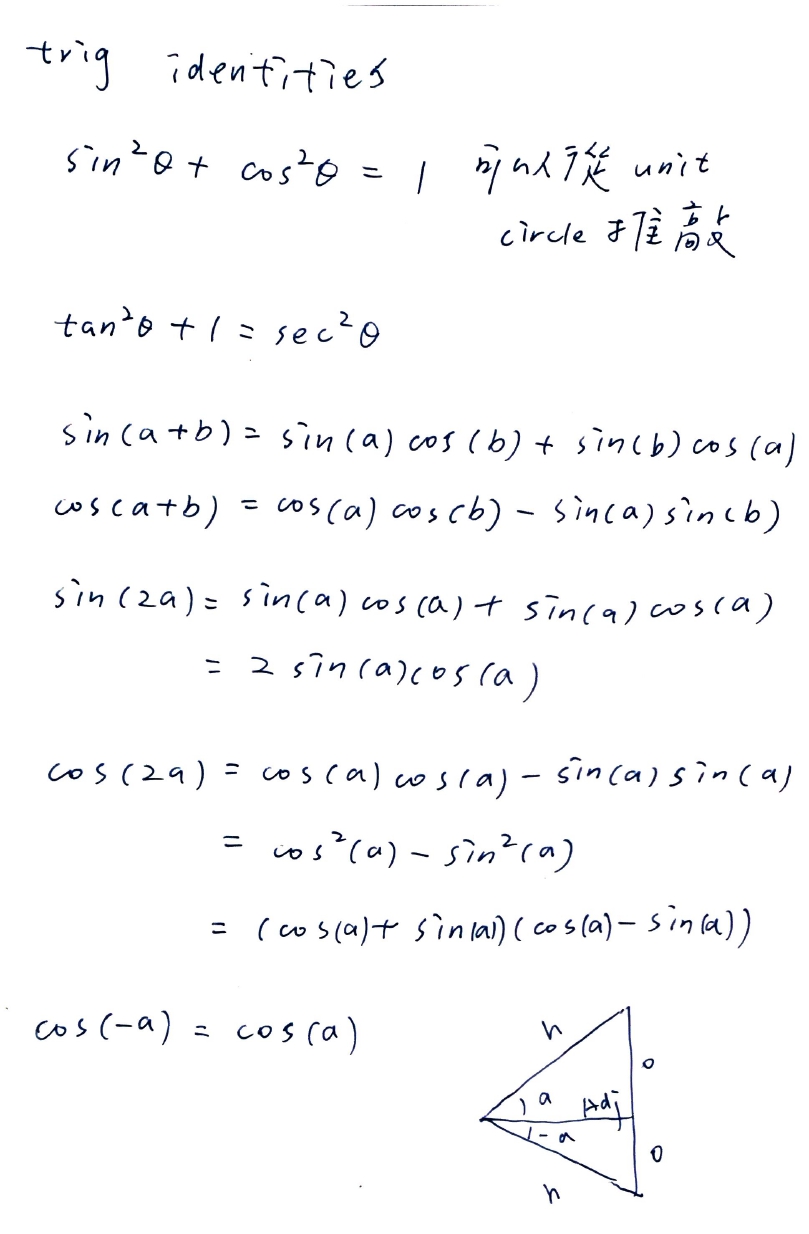 trig identities
sin²θ + cos²θ = 1 可以從 unit
circle 推敲
tan²θ + 1 = sec²θ
sin(a+b) = sin(a) cos(b) + sin(b) cos(a)
cos(a+b) = cos(a) cos(b) - sin(a) sin(b)
sin(2a) = sin(a) cos(a) + sin(a) cos(a)
= 2 sin(a)cos(a)
cos(2a) = cos(a) cos(a) - sin(a) sin(a)
= cos²(a) - sin²(a)
= (cos(a) + sin(a))(cos(a) - sin(a))
cos(-a) = cos(a)
h
o
a Adj
-a
o
h